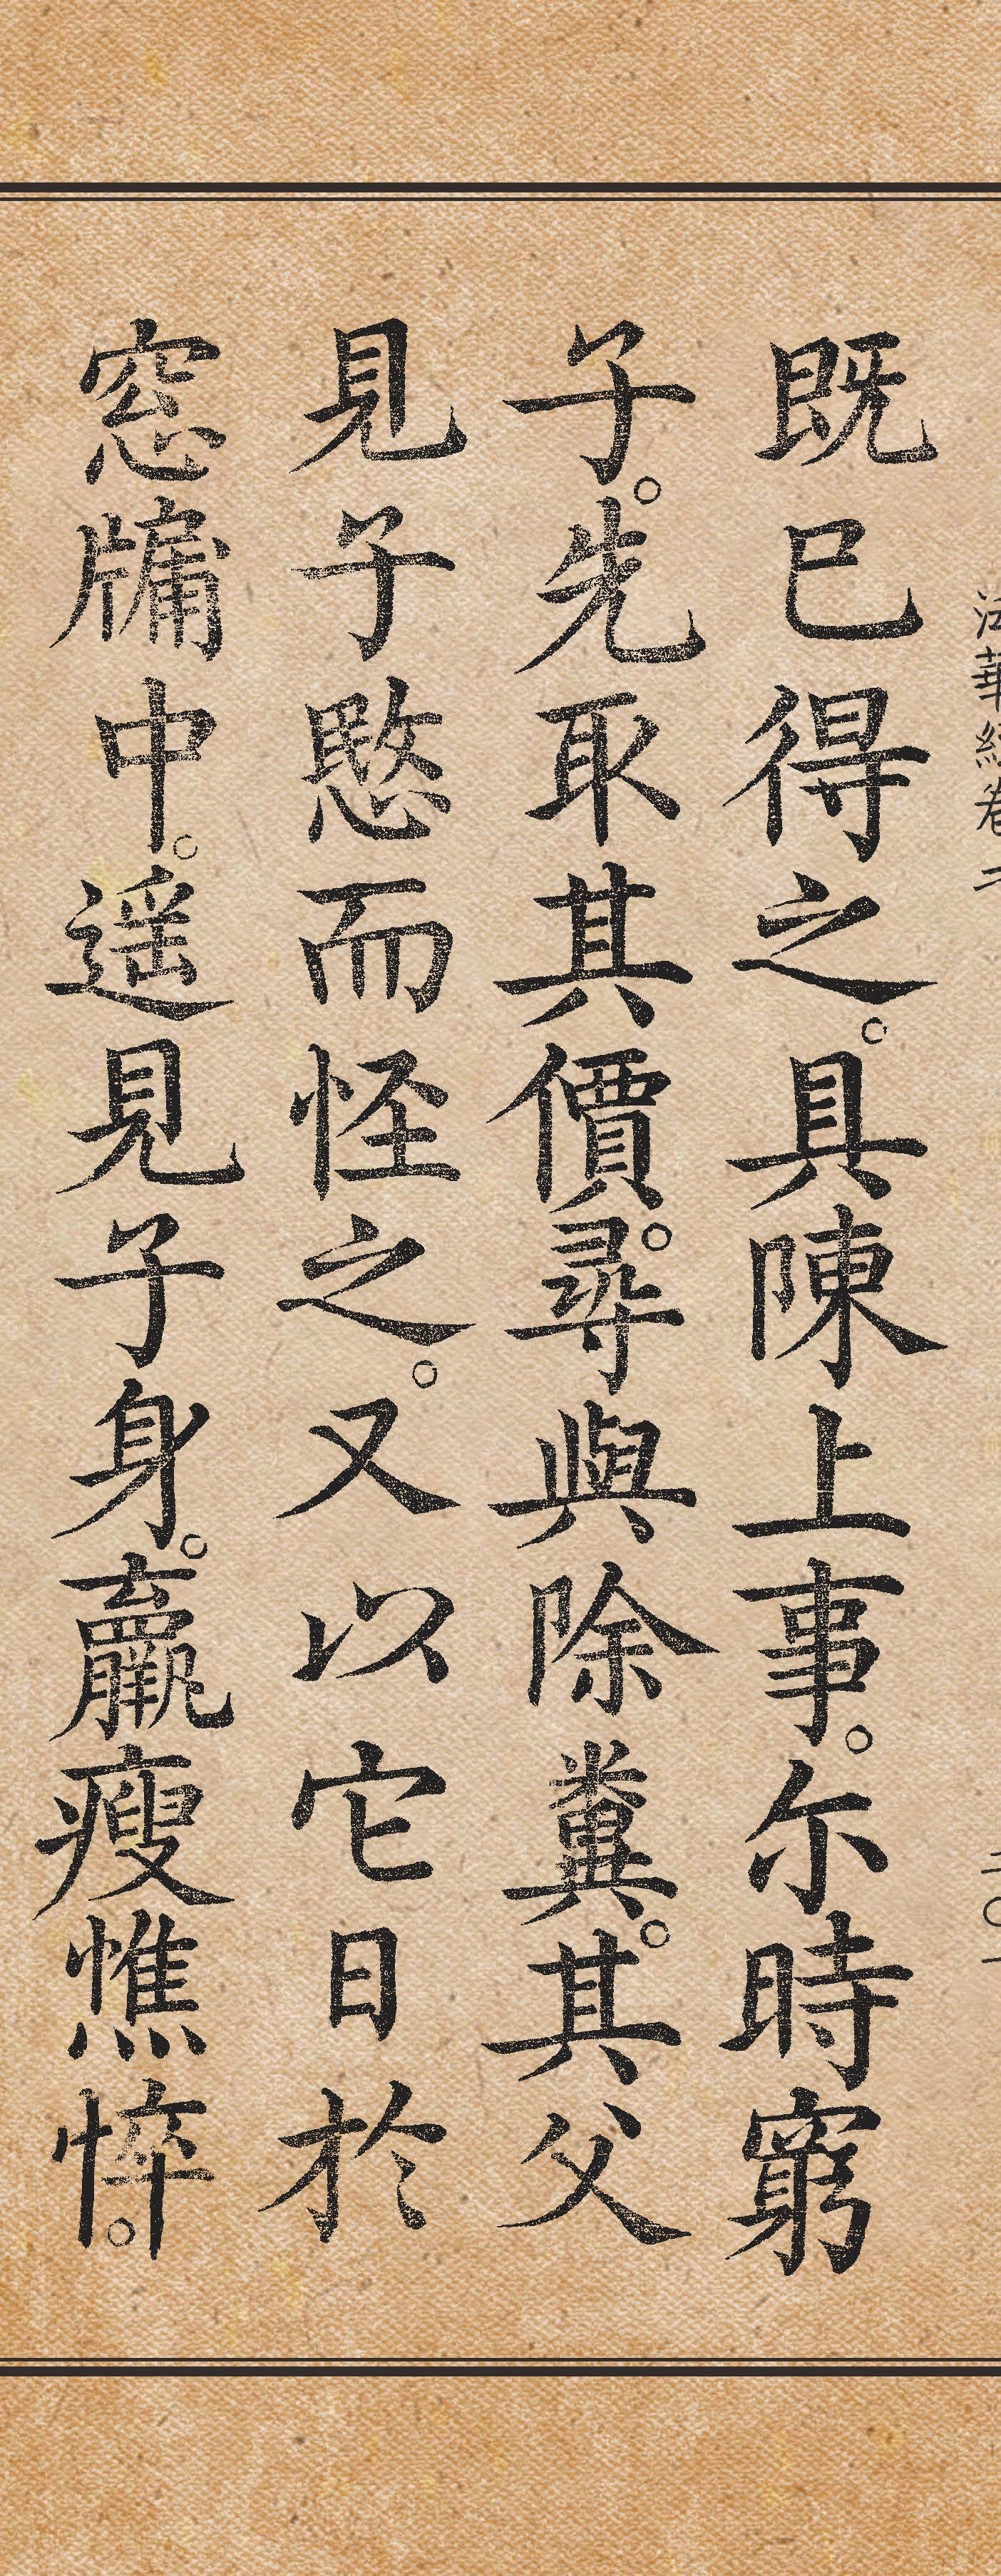 法華經卷二
既已得之。具陳上事。尓時窮
子。先取其價。尋與除糞。其父
見子愍而怪之。又以它日於
窓牖中。遥見子身。羸瘦憔悴。